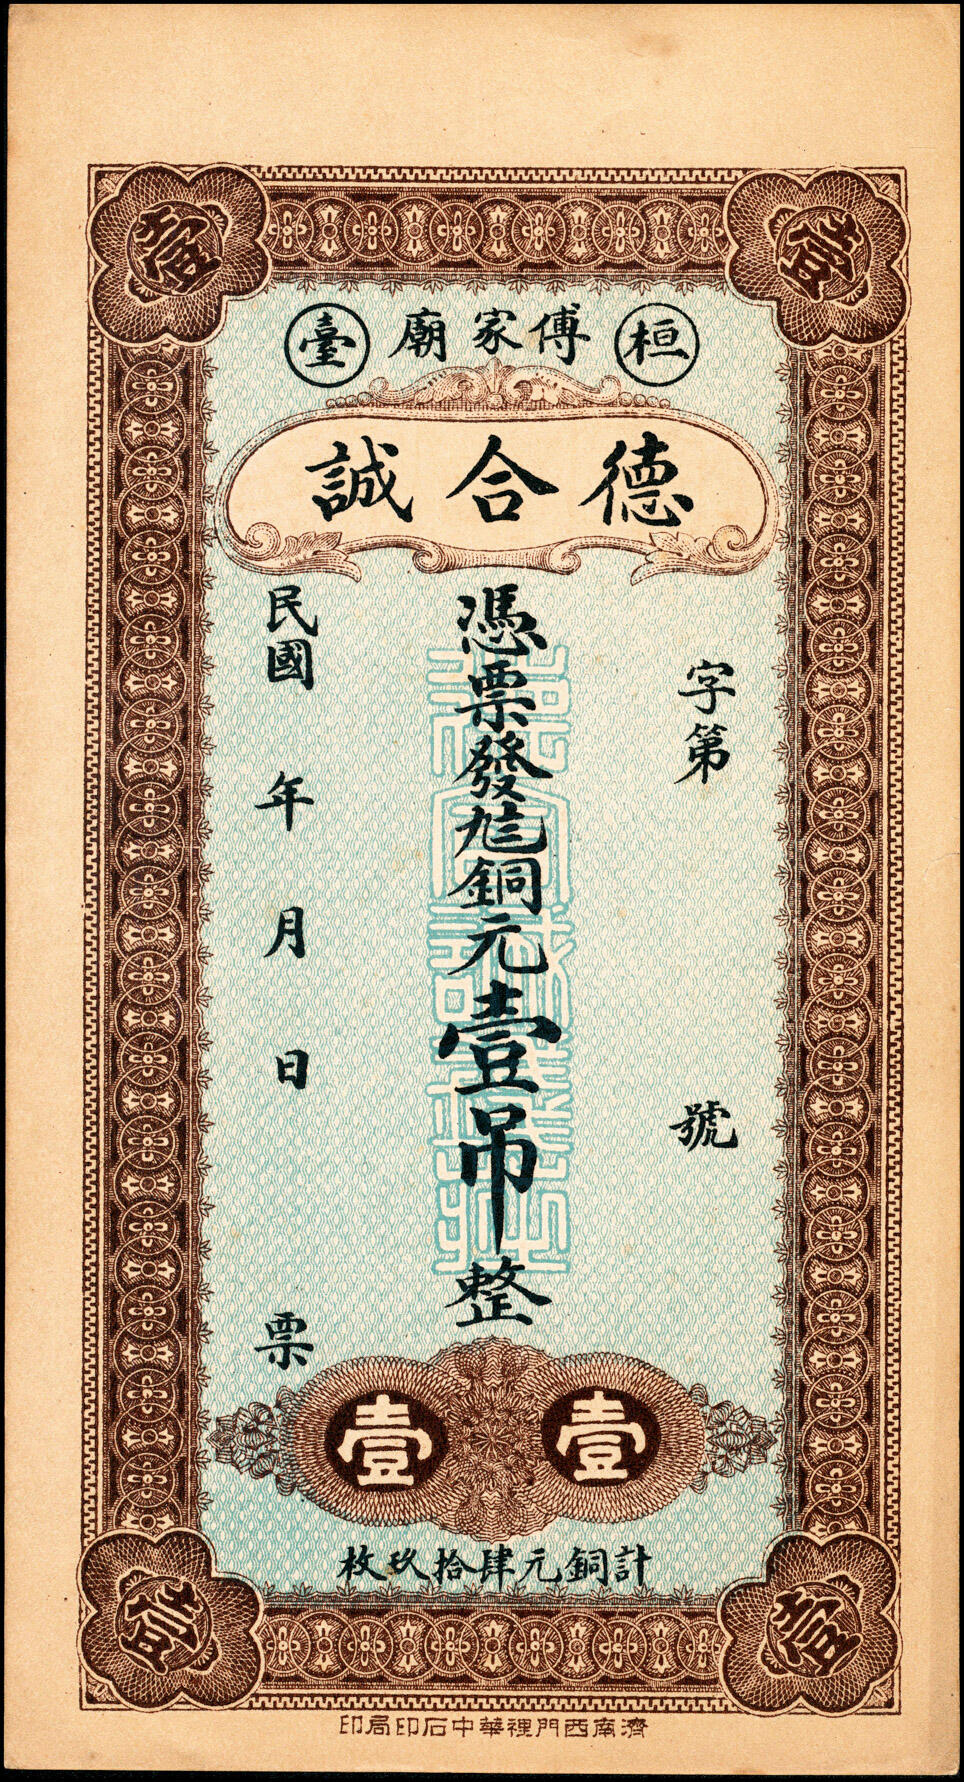 壹
桓 傅家廟 臺
德合誠
字第 號
憑票發銅元壹吊整
民國 年 月 日 票
壹 壹
計銅元肆拾玖枚
壹
濟南西門裡華中石印局印